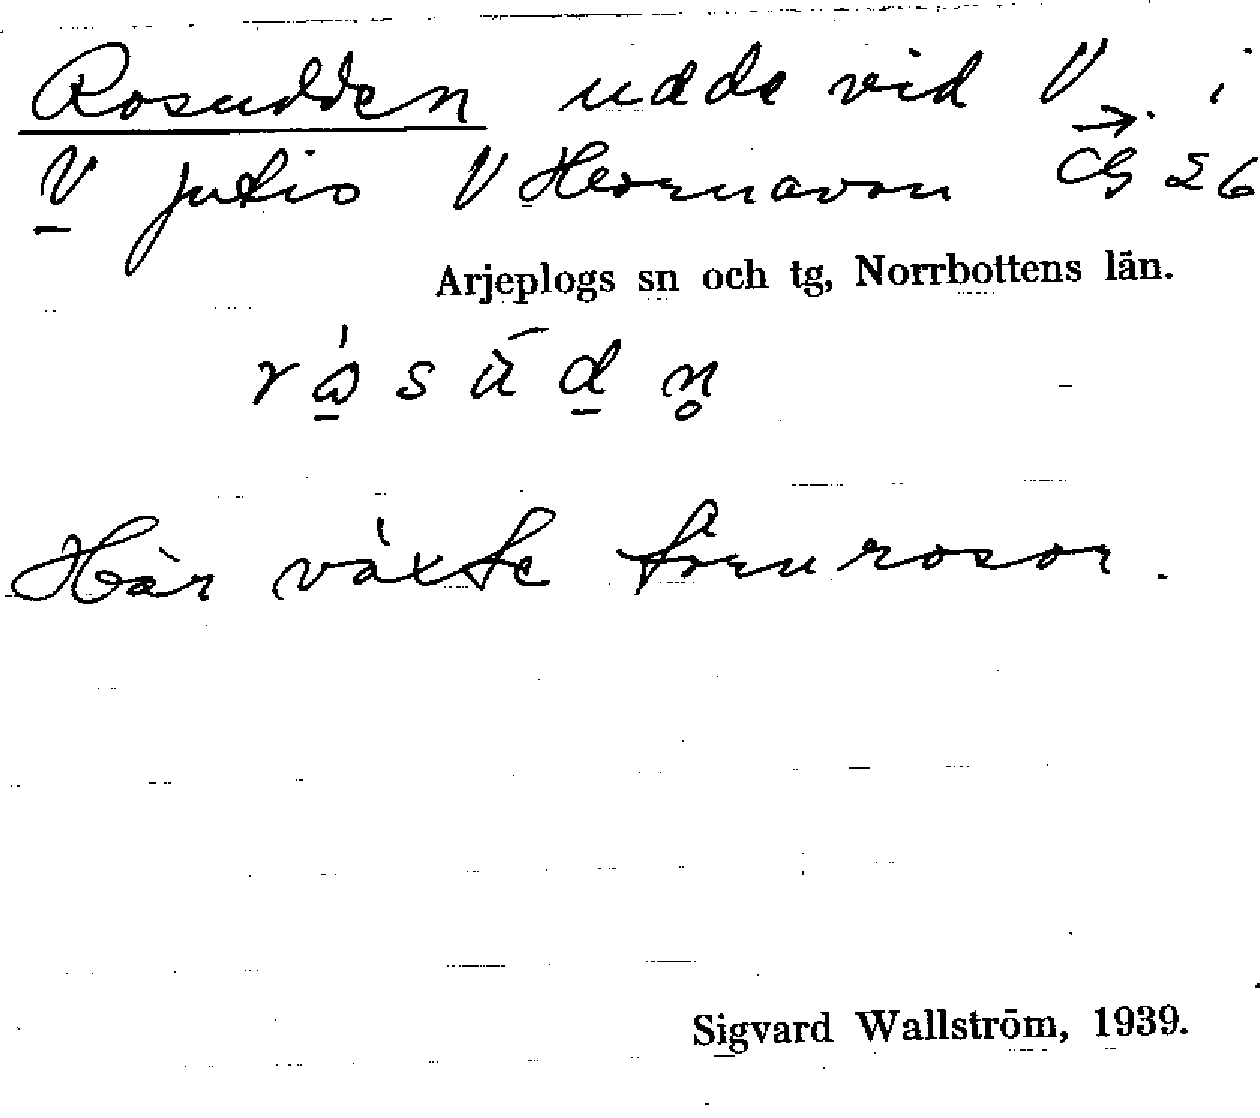 Rosudden udde vid V i
V Jutis V Hornavan → CG 26
Arjeplogs sn och tg, Norrbottens län.
Här växte törnrosor.
Sigvard Wallström, 1939.